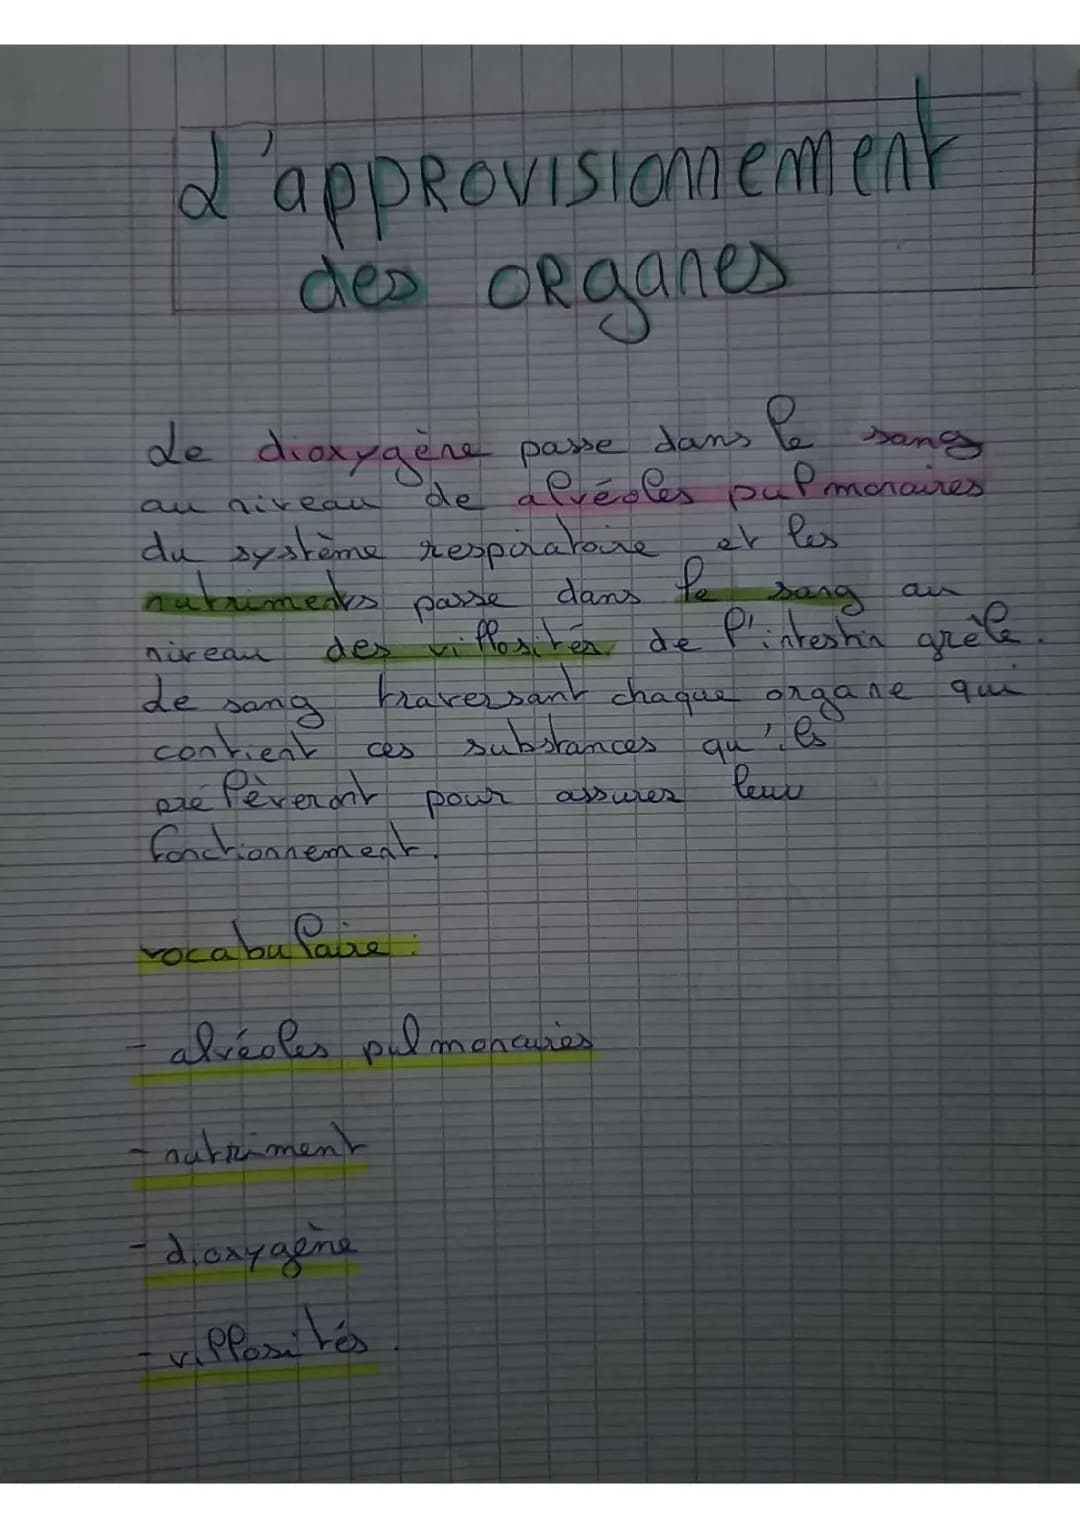 L'approvisionnement
des organes
Le dioxygène passe dans le sang
au niveau de alvéoles pulmonaires
du système respiratoire et les
nutriments passe dans le sang au
niveau des villosités de l'intestin grêle.
Le sang traversant chaque organe qui
contient ces substances qu'ils
prélèveront pour assurer leur
fonctionnement.
vocabulaire :
- alvéoles pulmonaires
- nutriment
- dioxygène
- villosités.